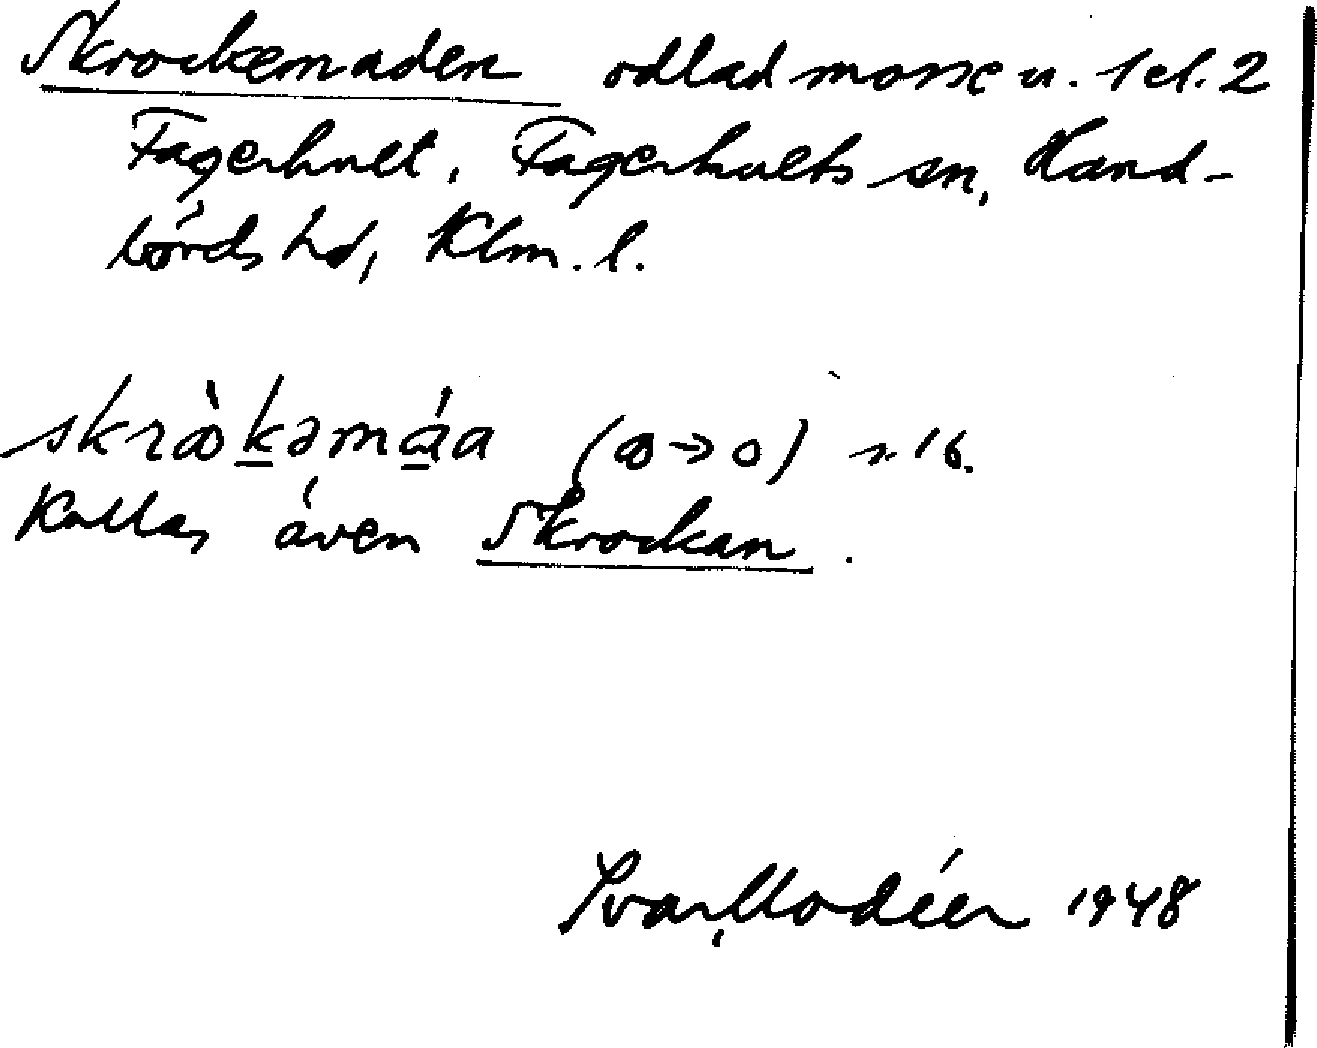 Skrockemaden odlad mosse u. 1 el. 2
Fagerhult, Fagerhults sn, Hand-
börds hd, Klm. l.
skrꝏ̀kəmáa (ꝏ→o) n 16.
Kallas även Skrockan.
Ivar Modéer 1948